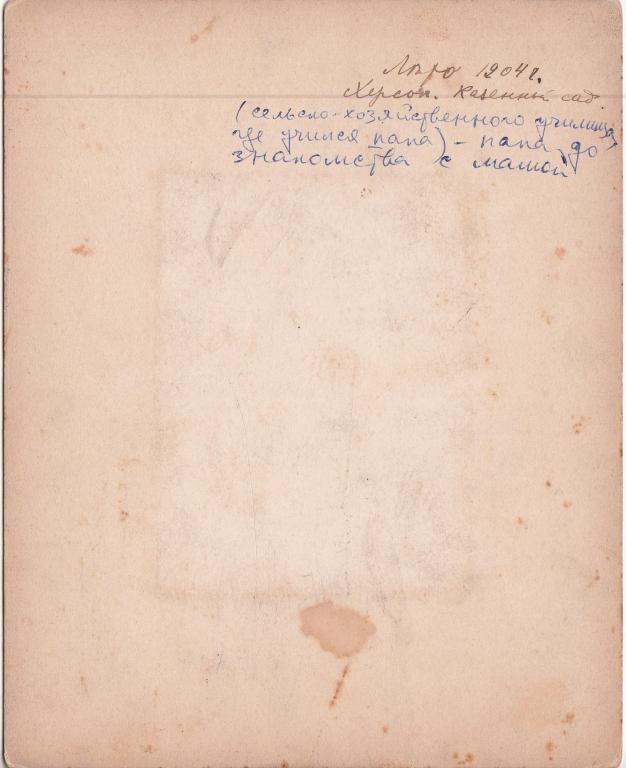 Лето 1904 г.
Херсон. Казенный сад.
(сельско-хозяйственного училища,
где учился папа) - папа до
знакомства с мамой